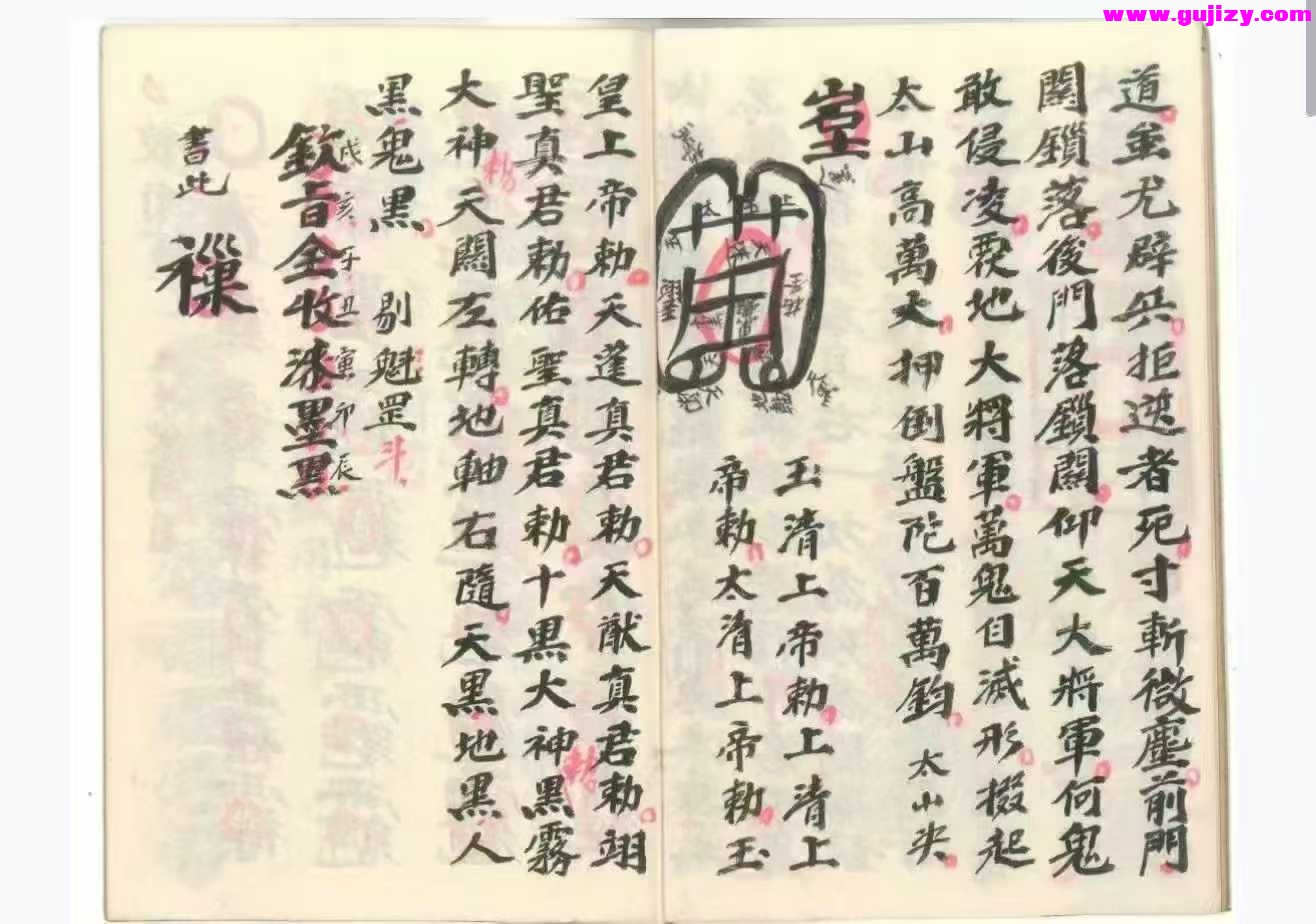 www.gujizy.com
道並尤辟兵拒逆者死寸斬微塵前門
關鎖落後門落鎖關仰天大將軍何鬼
敢侵凌覆地大將軍萬鬼自滅形掇起
太山高萬丈押倒盤陀百萬鈞太山尖
玉清上帝勅上清上
帝勅太清上帝勅玉
皇上帝勅天蓬真君勅天猷真君勅翊
聖真君勅佑聖真君勅十黑大神黑霧
大神天關左轉地軸右隨天黑地黑人
黑鬼黑 剔魁罡斗
戌亥子丑寅卯辰
欽旨全收滌墨黑
書此